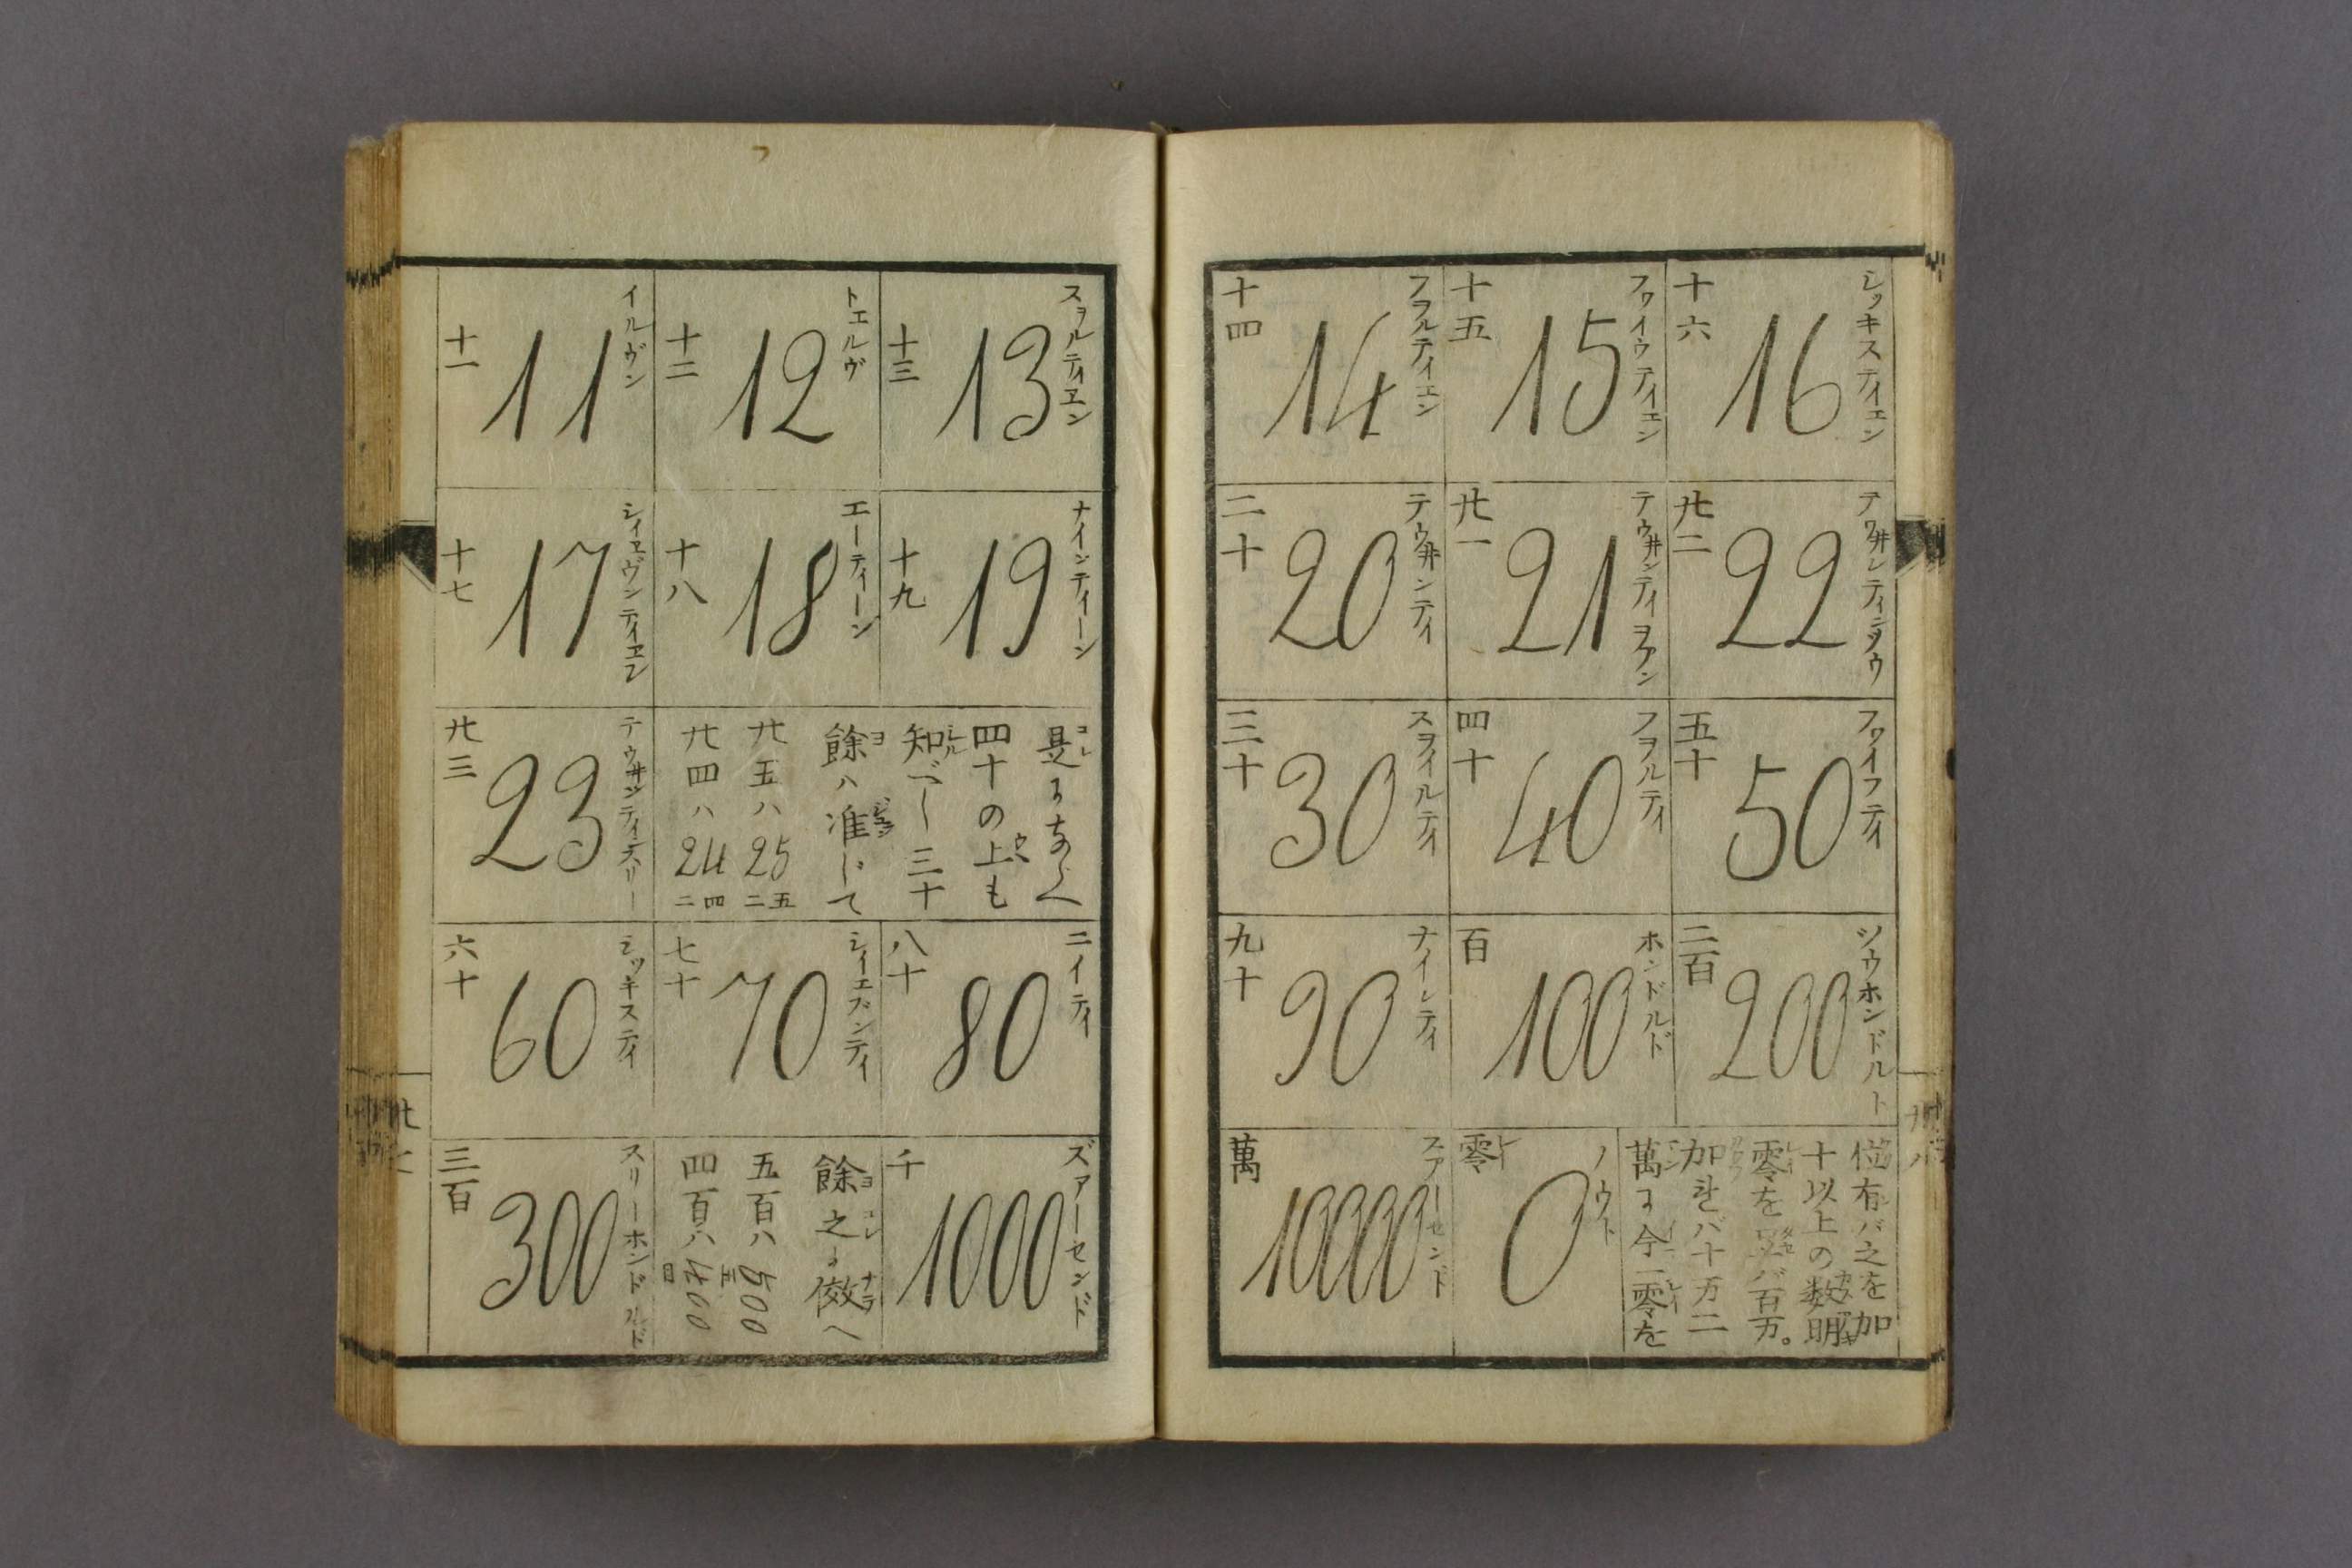 イルヴン
11
十一
トエルヴ
12
十二
スヲルティエン
13
十三
フヲルティエン
14
十四
フワイウティエン
15
十五
シッキスティエン
16
十六
シイエヴンティエン
17
十七
エーティーン
18
十八
ナインティーン
19
十九
テウ井ンティ
20
二十
テウ井ンティヲアン
21
廿一
22
廿二
23
廿三
廿四ハ24 二四
廿五ハ25 二五
餘ハ准じて
知べし三十
四十の上も
是に
スヲイルティ
30
三十
フヲルティ
40
四十
フワイフティ
50
五十
シッキスティ
60
六十
シイエブンティ
70
七十
ニイティ
80
八十
ナインティ
90
九十
ホンドルド
100
百
ツウホンドルト
200
二百
スリーホンドルド
300
三百
四百ハ400
五百ハ500
餘之に傚へ
ズアーセンド
1000
千
スアーセンド
10000
萬
ノウト
0
零
萬に今一零を
加ればバ十万二
零を バ百万。
十以上の数明
位有バ之を加